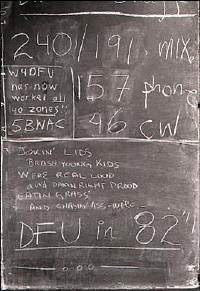 240/191 MIX
W4DFU
has now
worked all
40 zones!!
5BWAC
157 phone
46 CW
JOKIN' LIDS
BRASH YOUNG KIDS
WERE REAL LOUD
AND DAMN RIGHT PROUD
EATIN GRASS
AND CHASIN'
DFU in '82"